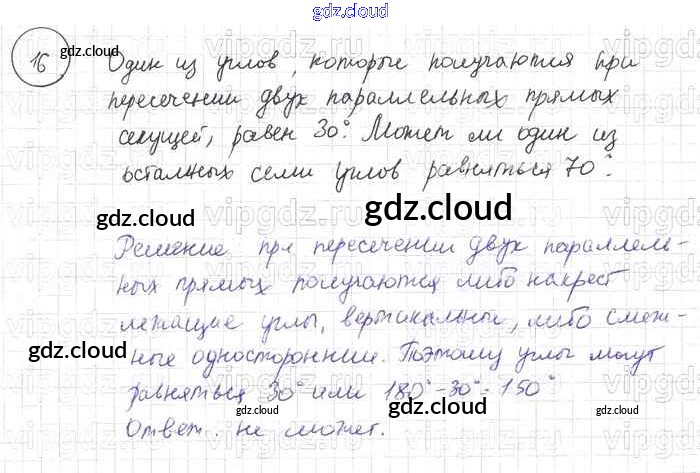 gdz.cloud
16 Один из углов, которые получаются при
пересечении двух параллельных прямых
секущей, равен 30°. Может ли один из
остальных семи углов равняться 70°.
gdz.cloud
gdz.cloud
Решение при пересечении двух параллель-
ных прямых получаются либо накрест
лежащие углы, вертикальные, либо смеж-
ные односторонние. Поэтому углы могут
равняться 30° или 180°-30°=150°
Ответ. не может.
gdz.cloud
gdz.cloud
gdz.cloud
gdz.cloud
gdz.cloud
gdz.cloud